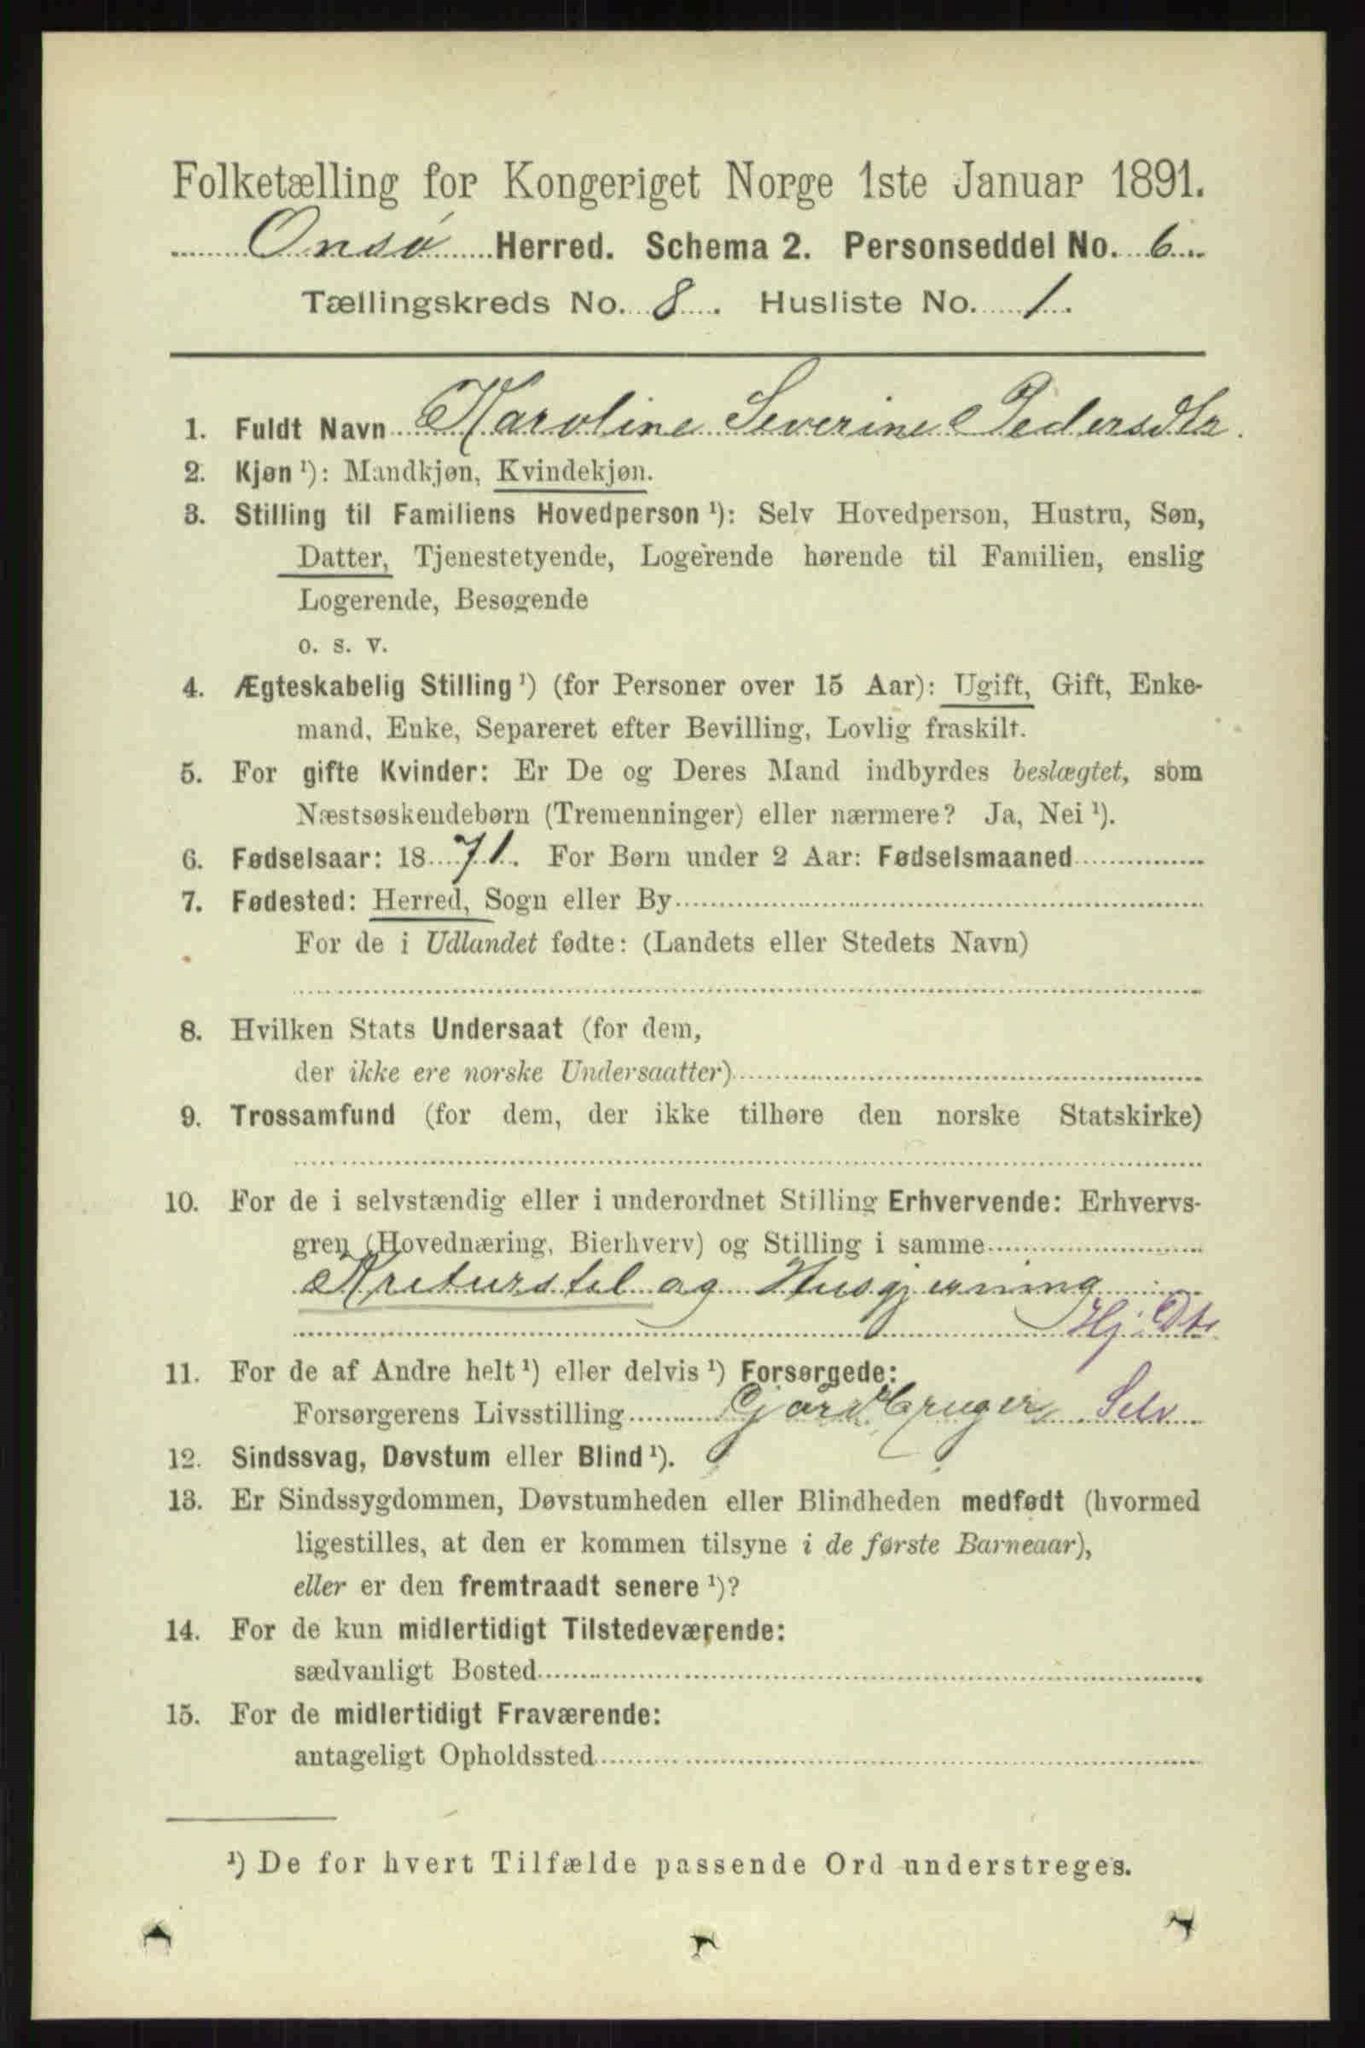 Folketælling for Kongeriget Norge 1ste Januar 1891.
Onsø Herred. Schema 2. Personseddel No. 6
Tællingskreds No. 8. Husliste No. 1.
1. Fuldt Navn Karoline Severine Pedersdtr.
2. Kjøn ¹): Mandkjøn, Kvindekjøn.
3. Stilling til Familiens Hovedperson ¹): Selv Hovedperson, Hustru, Søn,
Datter, Tjenestetyende, Logerende hørende til Familien, enslig
Logerende, Besøgende
o. s. v.
4. Ægteskabelig Stilling ¹) (for Personer over 15 Aar): Ugift, Gift, Enke-
mand, Enke, Separeret efter Bevilling, Lovlig fraskilt.
5. For gifte Kvinder: Er De og Deres Mand indbyrdes beslægtet, som
Næstsøskendebørn (Tremenninger) eller nærmere? Ja, Nei ¹).
6. Fødselsaar: 1871. For Børn under 2 Aar: Fødselsmaaned
7. Fødested: Herred, Sogn eller By
For de i Udlandet fødte: (Landets eller Stedets Navn)
8. Hvilken Stats Undersaat (for dem,
der ikke ere norske Undersaatter)
9. Trossamfund (for dem, der ikke tilhøre den norske Statskirke)
10. For de i selvstændig eller i underordnet Stilling Erhvervende: Erhvervs-
gren (Hovednæring, Bierhverv) og Stilling i samme
Kreturstel og Husgjerning
Hj. Dtr
11. For de af Andre helt ¹) eller delvis ¹) Forsørgede:
Forsørgerens Livsstilling Gjårdbruger Selv
12. Sindssvag, Døvstum eller Blind ¹).
13. Er Sindssygdommen, Døvstumheden eller Blindheden medfødt (hvormed
ligestilles, at den er kommen tilsyne i de første Barneaar),
eller er den fremtraadt senere ¹)?
14. For de kun midlertidigt Tilstedeværende:
sædvanligt Bosted
15. For de midlertidigt Fraværende:
antageligt Opholdssted
¹) De for hvert Tilfælde passende Ord understreges.